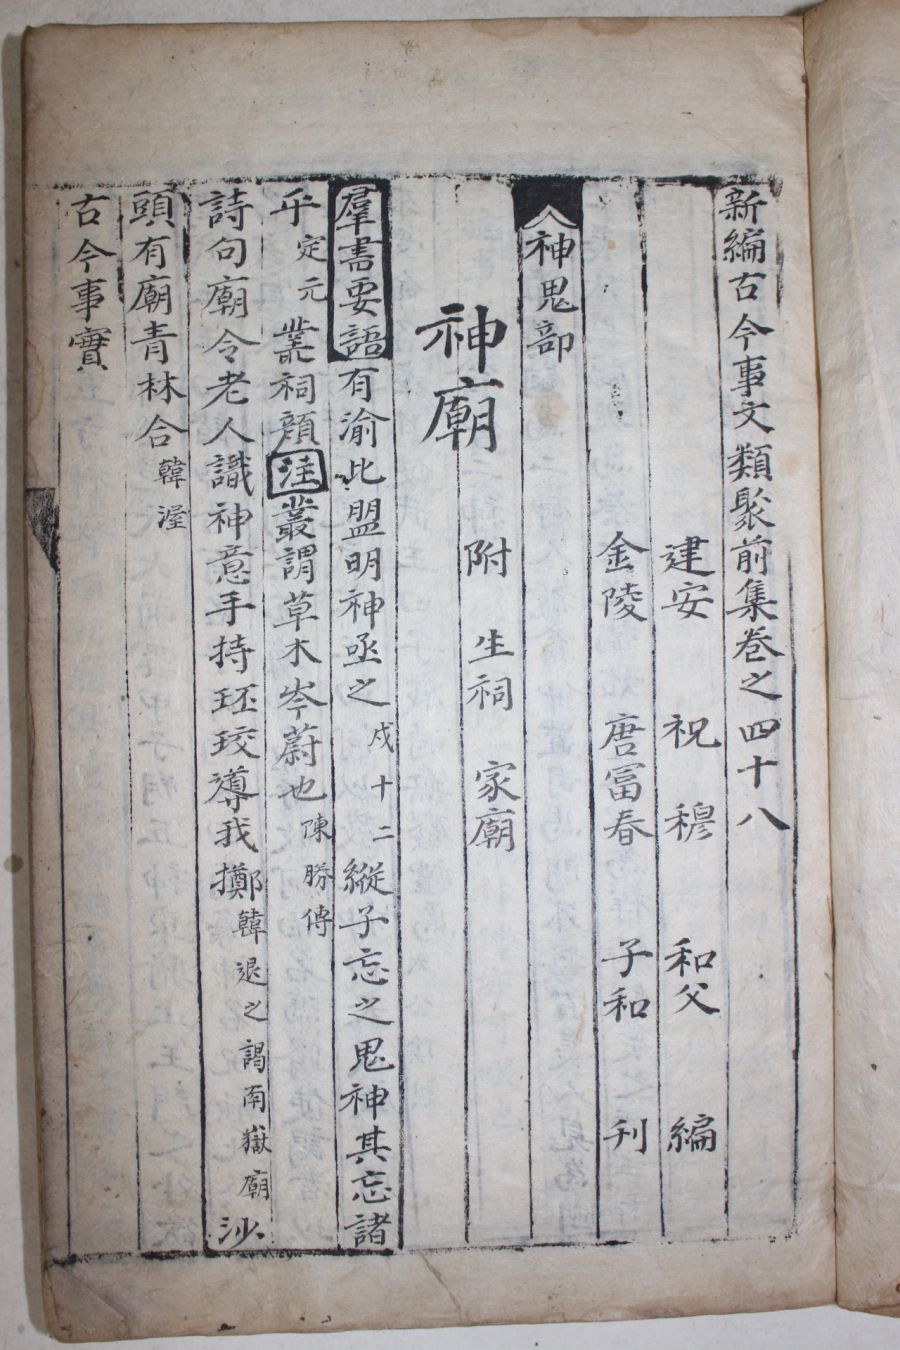 新編古今事文類聚前集卷之四十八
建安 祝穆 和父 編
金陵 唐富春 子和 刊
神鬼部
神廟 附 生祠 家廟
羣書要語有渝此盟明神亟之成十二縱子忘之鬼神其忘諸
乎定元叢祠顔注叢謂草木岑蔚也陳勝傳
詩句廟令老人識神意手持珓導我擲韓退之謁南嶽廟沙
頭有廟青林合韓渥
古今事實